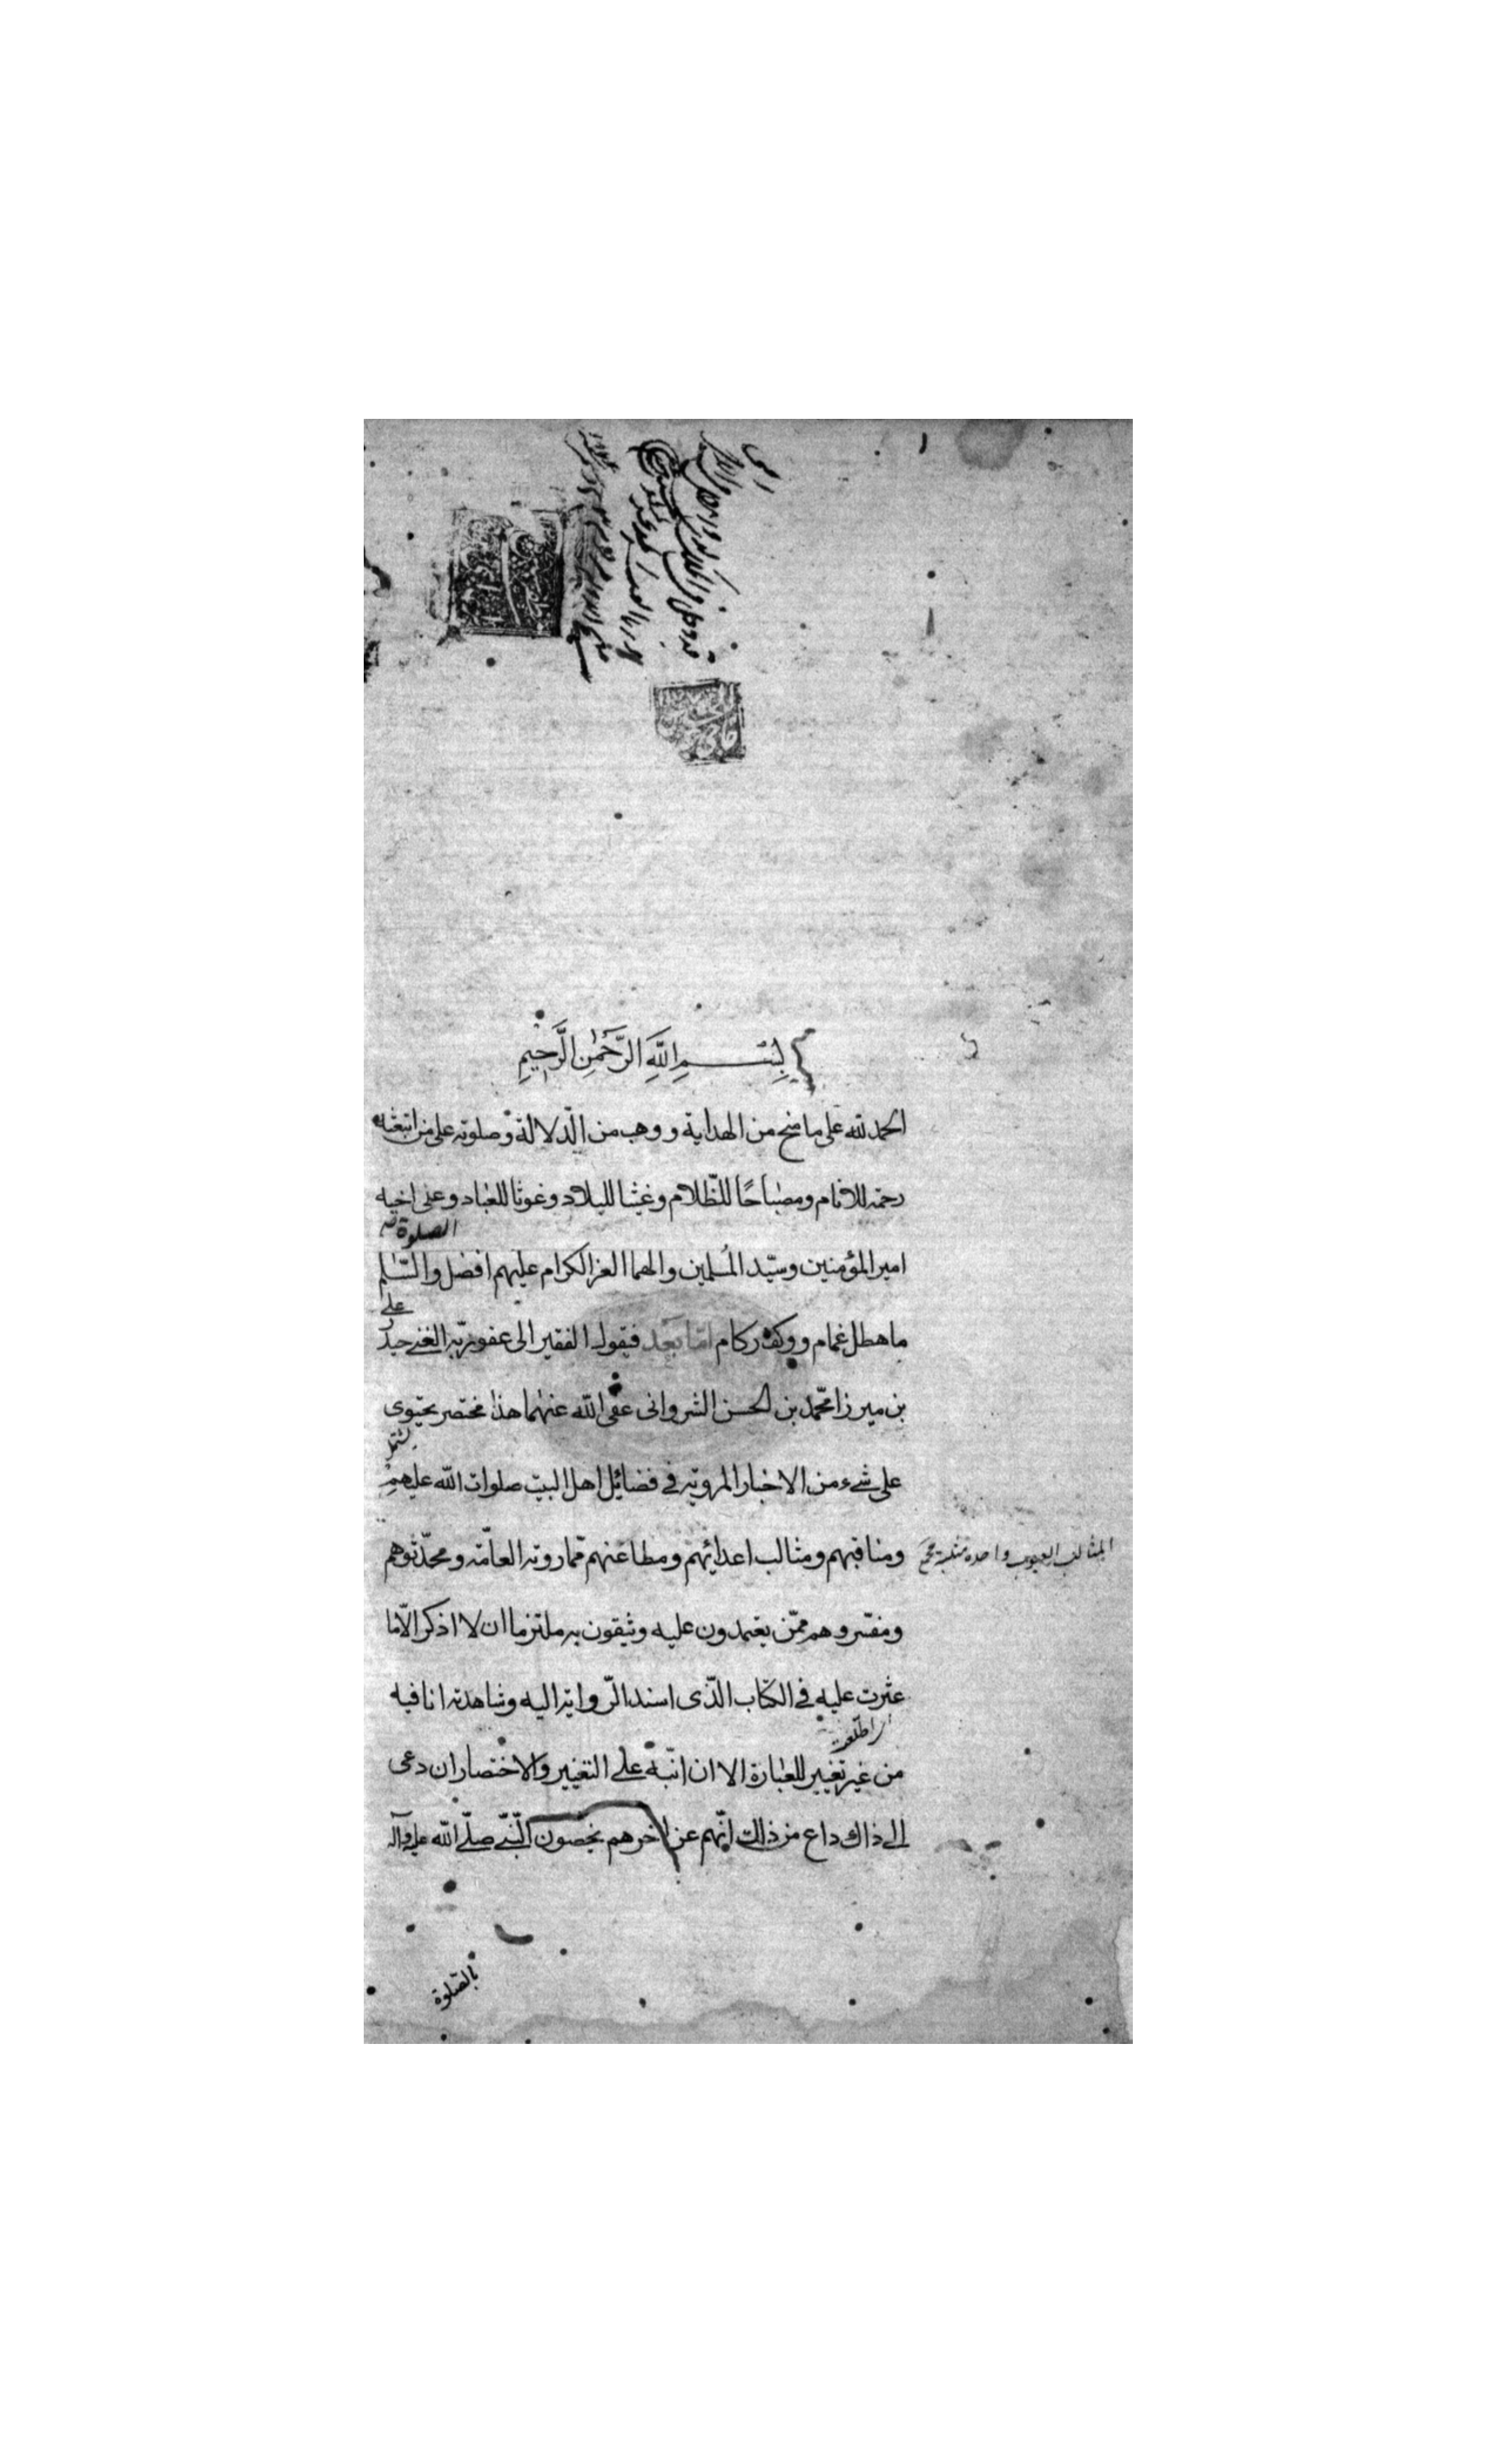 بِسْمِ اللَّهِ الرَّحْمٰنِ الرَّحِيمِ
الحمد لله على ما منح من الهداية و وهب من الدّلالة و صلوته على من ابتعثه
رحمة للانام ومصباحًا للظّلام وغيثا للبلاد وغوثا للعباد وعلى اخيه
الصلوة
امير المؤمنين وسيّد المسلمين والهما الغر الكرام عليهم افضل والسّلم
على
ما هطل غمام ووكف ركام امّا بعد فيقول الفقير الى عفو ربّه الغنى حيدر
بن ميرزا محمّد بن الحسن الشروانى عفى الله عنهما هذا مختصر يحتوى
يشتمل
على شىء من الاخبار المرويّة في فضائل اهل البيت صلوات الله عليهم
ومناقبهم ومثالب اعدائهم ومطاعنهم ممّا روته العامّة ومحدّثوهم
المثالب العيوب واحده مثلبة
ومفسّروهم ممّن يعتمدون عليه ويثقون به ملتزما ان لا اذكر الّا ما
عثرت عليه في الكتاب الذّى اسند الرّواية اليه وشاهدته انا فيه
من غير تغيير للعبارة الا ان انبّه على التغيير والاختصار ان دعى
الى ذاك داع من ذلك انّهم عن اخرهم يخصون النّبىّ صلّى الله عليه وآله
بالصّلوة